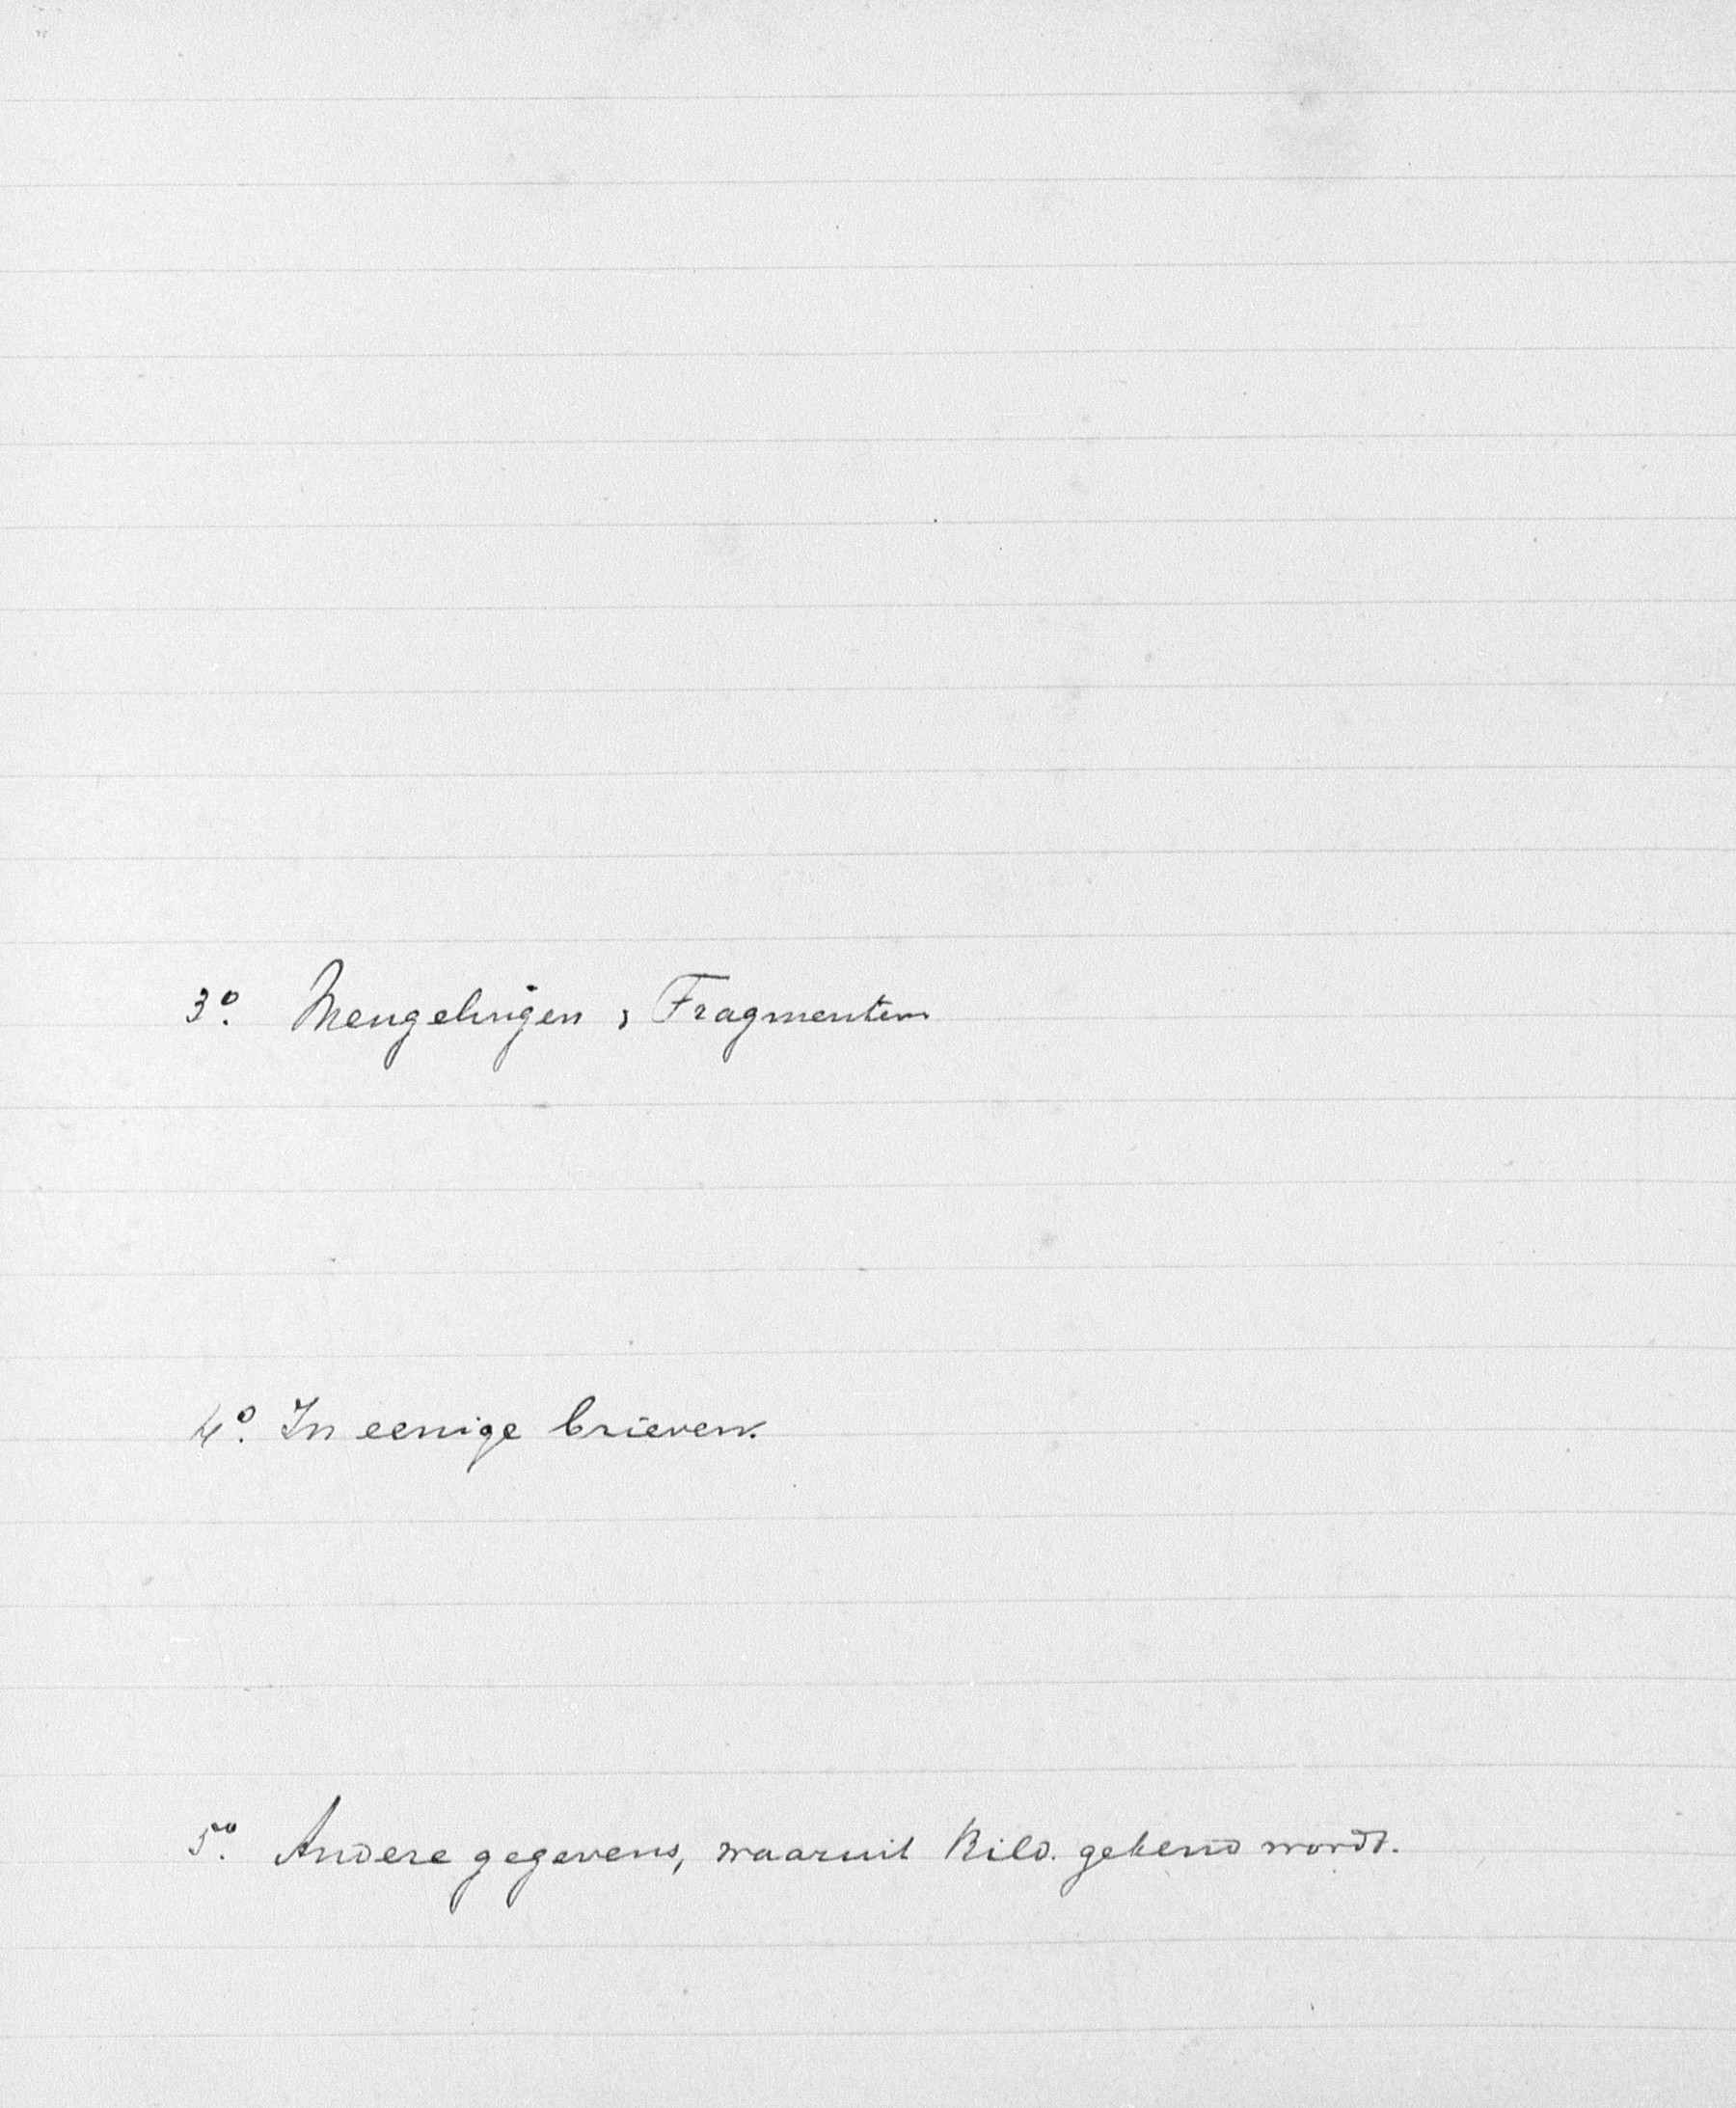 3º. Mengelingen, Fragmenten
4º. In eenige brieven.
5º. Andere gegevens, waaruit Bild. gekend wordt.